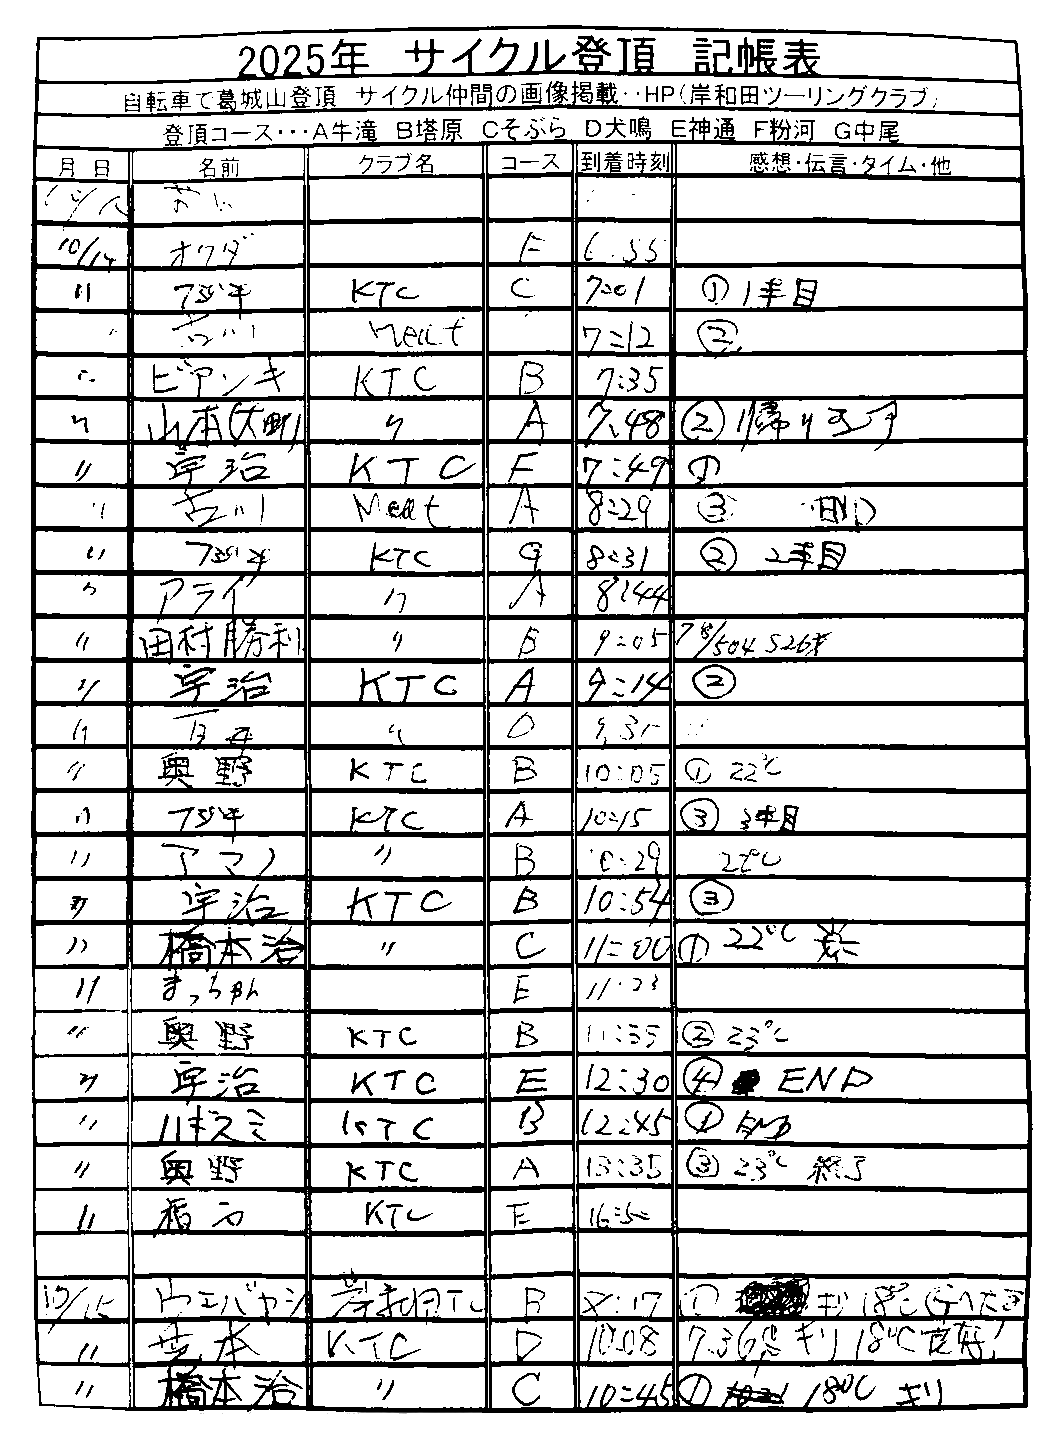 2025年 サイクル登頂 記帳表
自転車で葛城山登頂 サイクル仲間の画像掲載‥HP(岸和田ツーリングクラブ)
登頂コース・・・A牛滝 B塔原 Cそぶら D犬鳴 E神通 F粉河 G中尾
月 日 名前 クラブ名 コース 到着時刻 感想・伝言・タイム・他
10/14 オクダ F 6:55
〃 フジキ KTC C 7:01 ① 1本目
〃 吉川 Meat 7:12 ②
〃 ビアンキ KTC B 7:35
〃 山本(大町) 〃 A 7:48 ② 帰ります
〃 宇治 KTC F 7:49 ①
〃 吉川 Meat A 8:29 ③ END
〃 フジキ KTC G 8:31 ② 2本目
〃 アライ 〃 A 8:44
〃 田村勝利 〃 B 9:05
〃 宇治 KTC A 9:14 ②
〃 〃 D
〃 奥野 KTC B 10:05 ① 22℃
〃 フジキ KTC A 10:15 ③ 3本目
〃 アマノ 〃 B 10:29 22℃
〃 宇治 KTC B 10:54 ③
〃 橋本治 〃 C 11:00 ① 22℃
〃 まっちゃん E 11:23
〃 奥野 KTC B 11:35 ② 23℃
〃 宇治 KTC E 12:30 ④ END
〃 ハギスミ KTC B 12:45 ① END
〃 奥野 KTC A 13:35 ③ 23℃ 終了
〃 KTC E
10/15 ウエバヤシ 岸和田TC B 8:17 ① キリ 18℃
〃 芝本 KTC D 10:08 キリ 18℃
〃 橋本治 〃 C 10:45 ① 18℃ キリ